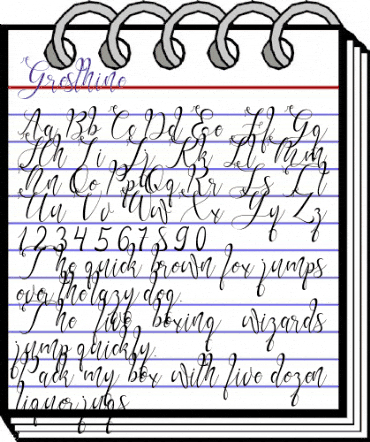 Grosthino
Aa Bb Cc Dd Ee Ff Gg
Hh Ii Jj Kk Ll Mm
Nn Oo Pp Qq Rr Ss Tt
Uu Vv Ww Xx Yy Zz
1 2 3 4 5 6 7 8 9 0
The quick brown fox jumps
over the lazy dog.
The five boxing wizards
jump quickly.
Pack my box with five dozen
liquor jugs